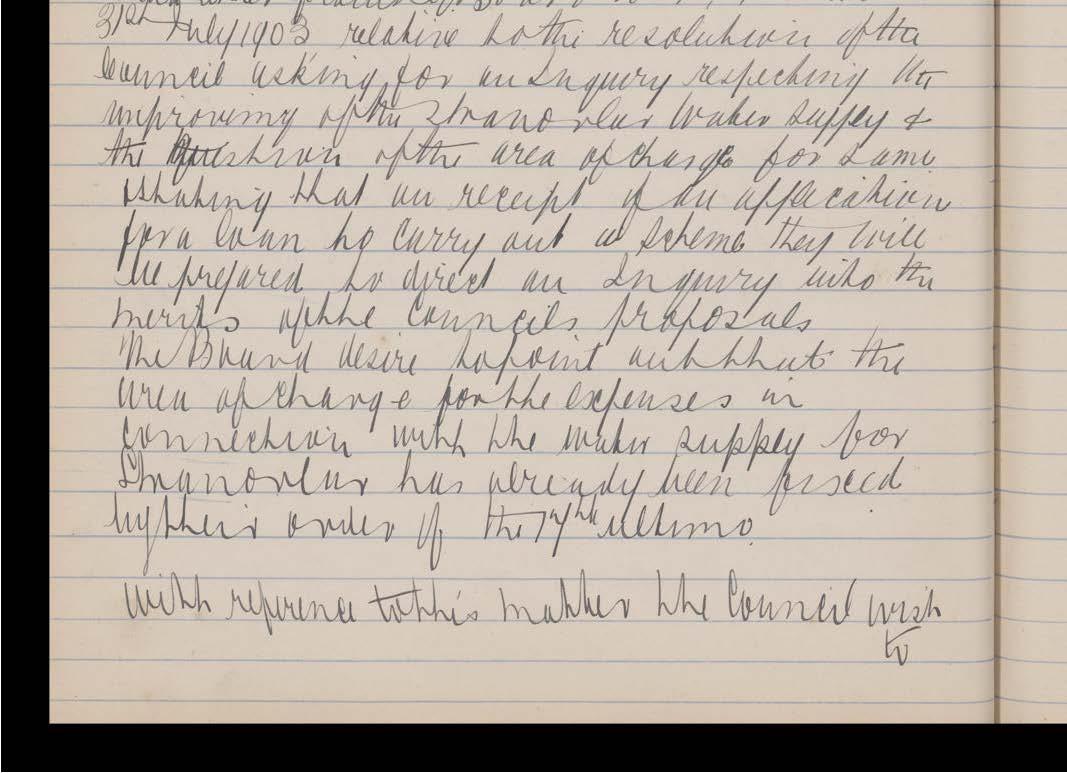 31st July 1903 relative to the resolution of the
Council asking for an Inquiry respecting the
improving of the Stranorlar Water Supply &
the Question of the area of charge for same
& stating that on receipt of an application
for a loan to carry out a scheme they will
be prepared to direct an Inquiry into the
merits of the Councils proposals
The Board desire to point out that the
area of charge for the expenses in
connection with the water supply for
Stranorlar has already been fixed
by their order of the 17th ultimo.
With reference to this matter the Council wish
to